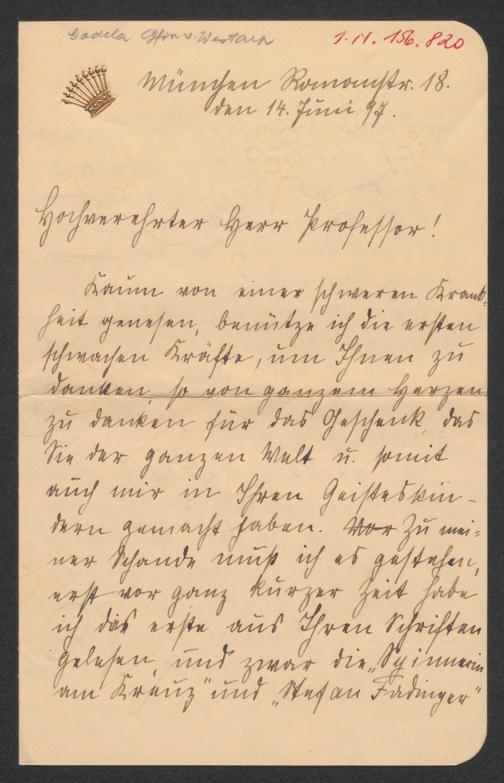 Godela Gfin v. Westarp
I. N. 156.820
München Romanstr. 18.
den 14. Juni 97.
Hochverehrter Herr Professor!
Kaum von einer schweren Krank-
heit genesen, benütze ich die ersten
schwachen Kräfte, um Ihnen zu
danken, so von ganzem Herzen
zu danken für das Geschenk, das
Sie der ganzen Welt u. somit
auch mir in Ihren Geisteskin-
dern gemacht haben. Vor Zu mei-
ner Schande muß ich es gestehen,
erst vor ganz kurzer Zeit habe
ich das erste aus Ihren Schriften
gelesen, und zwar die „Spinnerin
am Kreuz" und „Stefan Fadinger"